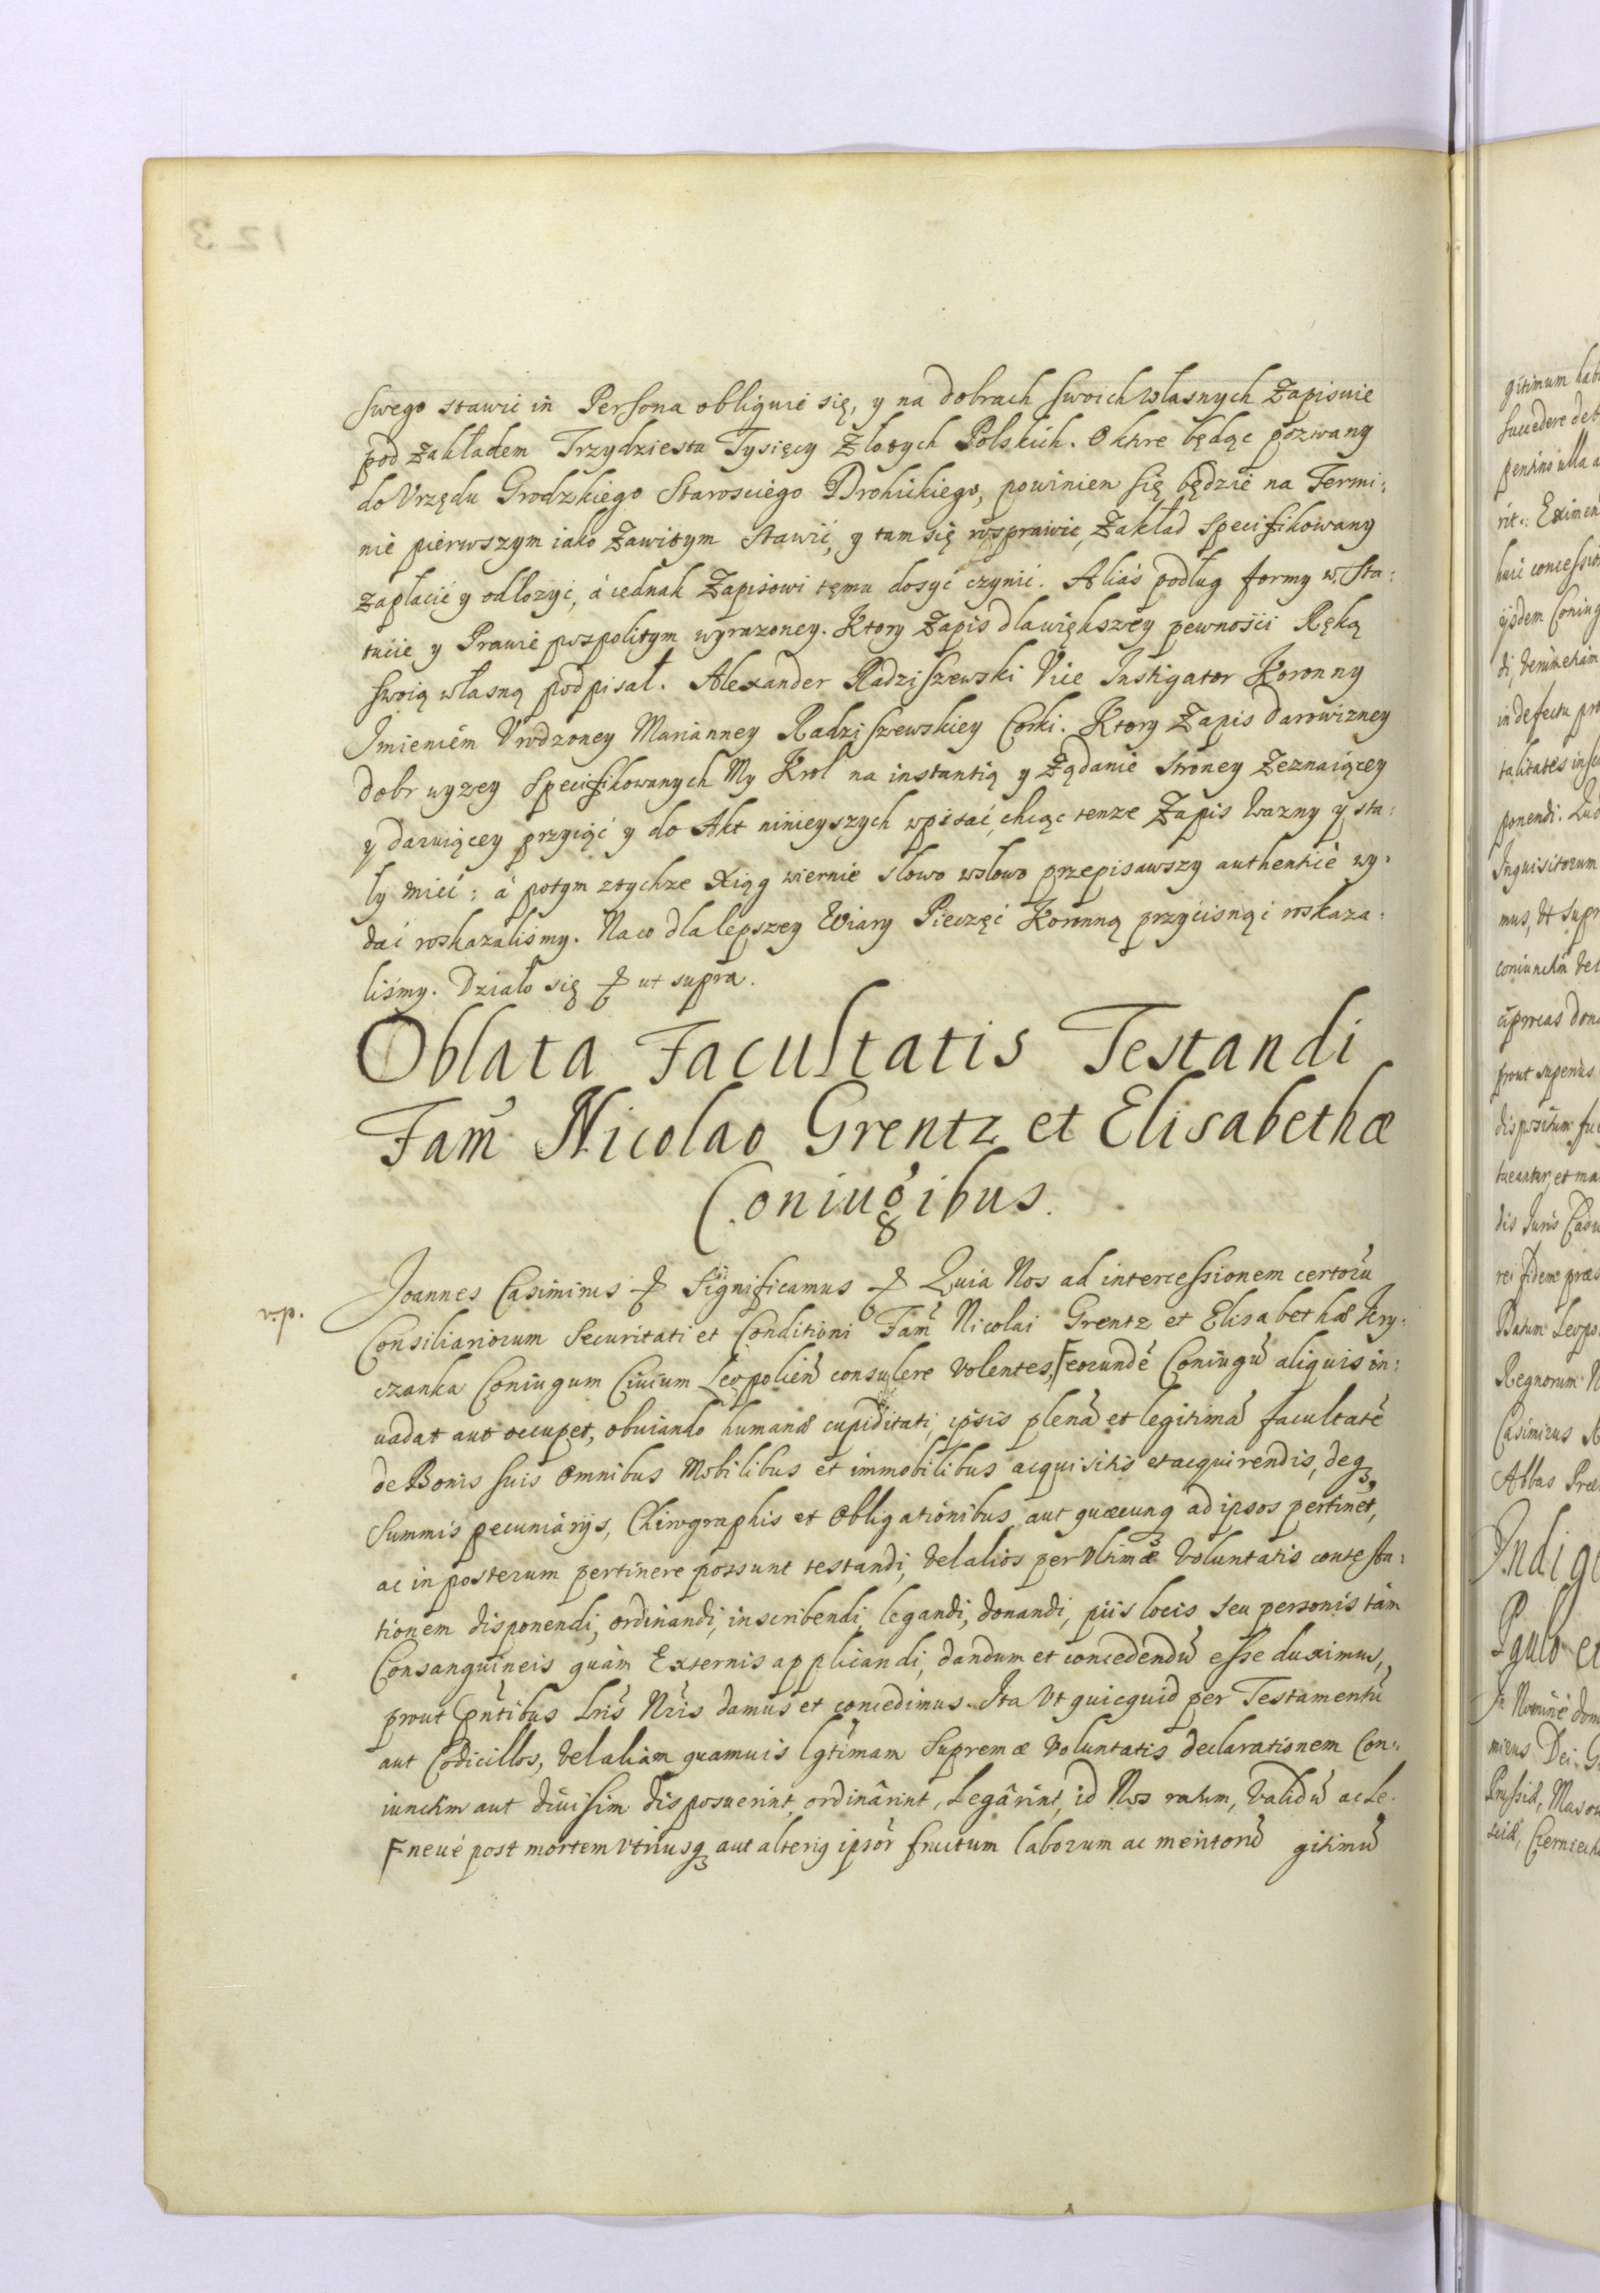 swego stawić in Persona obliguie się, y na dobrach swoich własnych Zapisuie
pod zakładem Trzydziestu Tysięcy Złotych Polskich. O ktore będąc pozwany
do Vrzędu Grodzkiego Starosciego Drohickiego, powinien się będzie na Termi:
nie pierwszym iako Zawitym Stawić, y tam się rosprawić, Zakład specifikowany
zapłacić y odłozyć, á iednak Zapisowi temu dosyć czynić. Aliás podług formy w Sta:
tucie y Prawie pospolitym wyrazoney. Ktory Zapis dla większey pewności Ręką
swoią własną podpisał. Alexander Radziszewski Vice Instigator Koronny
Imieniem Vrodzoney Marianney Radziszewskiey Corki. Ktory Zapis Darowizney
dobr wyzey specifikowanych My Krol na instantią y Żądanie Stroney Zeznaiącey
y daruiącey przyiąć y do Akt ninieyszych wpisać, chcąc tenze Zapis Wazny y sta:
ły mieć: á potym z tychze Xiąg wiernie słowo w słowo przepisawszy authenticè wy:
dać roskazaliśmy. Na co dla lepszey Wiary Pieczęć Koronną przycisnąć roskaza:
liśmy. Działo się & ut supra.
Oblata Facultatis Testandi
Fam̃ Nicolao Grentz et Elisabethæ
Coniugibus.
Joannes Casimirus & Significamus & Quia Nos ad intercessionem certorũ
Consiliariorum Securitati et Conditioni Fam̃ Nicolai Grentz et Elisabethæ Kry:
czanka Coniugum Ciuium Leopolieñ consulere volentes, F eorundẽ Coniugũ aliquis in:
uadat aut occupet, obuiando humanæ cupiditati, ipsis plenã et legitimã facultatẽ
de Bonis suis omnibus Mobilibus et immobilibus acquisitis et acquirendis, deq;
Summis pecuniarijs, Chirographis et Obligationibus aut quæcunq; ad ipsos pertinẽt,
ac in posterum pertinere possunt testandi, vel alios per Vltimæ Voluntatis contesta:
tionem disponendi, ordinandi, inscribendi, legandi, donandi, piis locis seu personis tàm
Consanguineis quàm Externis applicandi, dandum et concedendũ esse duximus,
prout pñtibus Lris Nris damus et concedimus. Ita Vt quicquid per Testamentũ
aut Codicillos, vel aliam quamuis lgtimam Supremæ Voluntatis declarationem Con:
iunctim aut diuisim disposuerint, ordinârint, Legârint, id Nos ratum, Validũ ac Le:
F neue post mortem vtriusq; aut alterig ipsor̃ fructum laborum ac meritorũ gitimũ